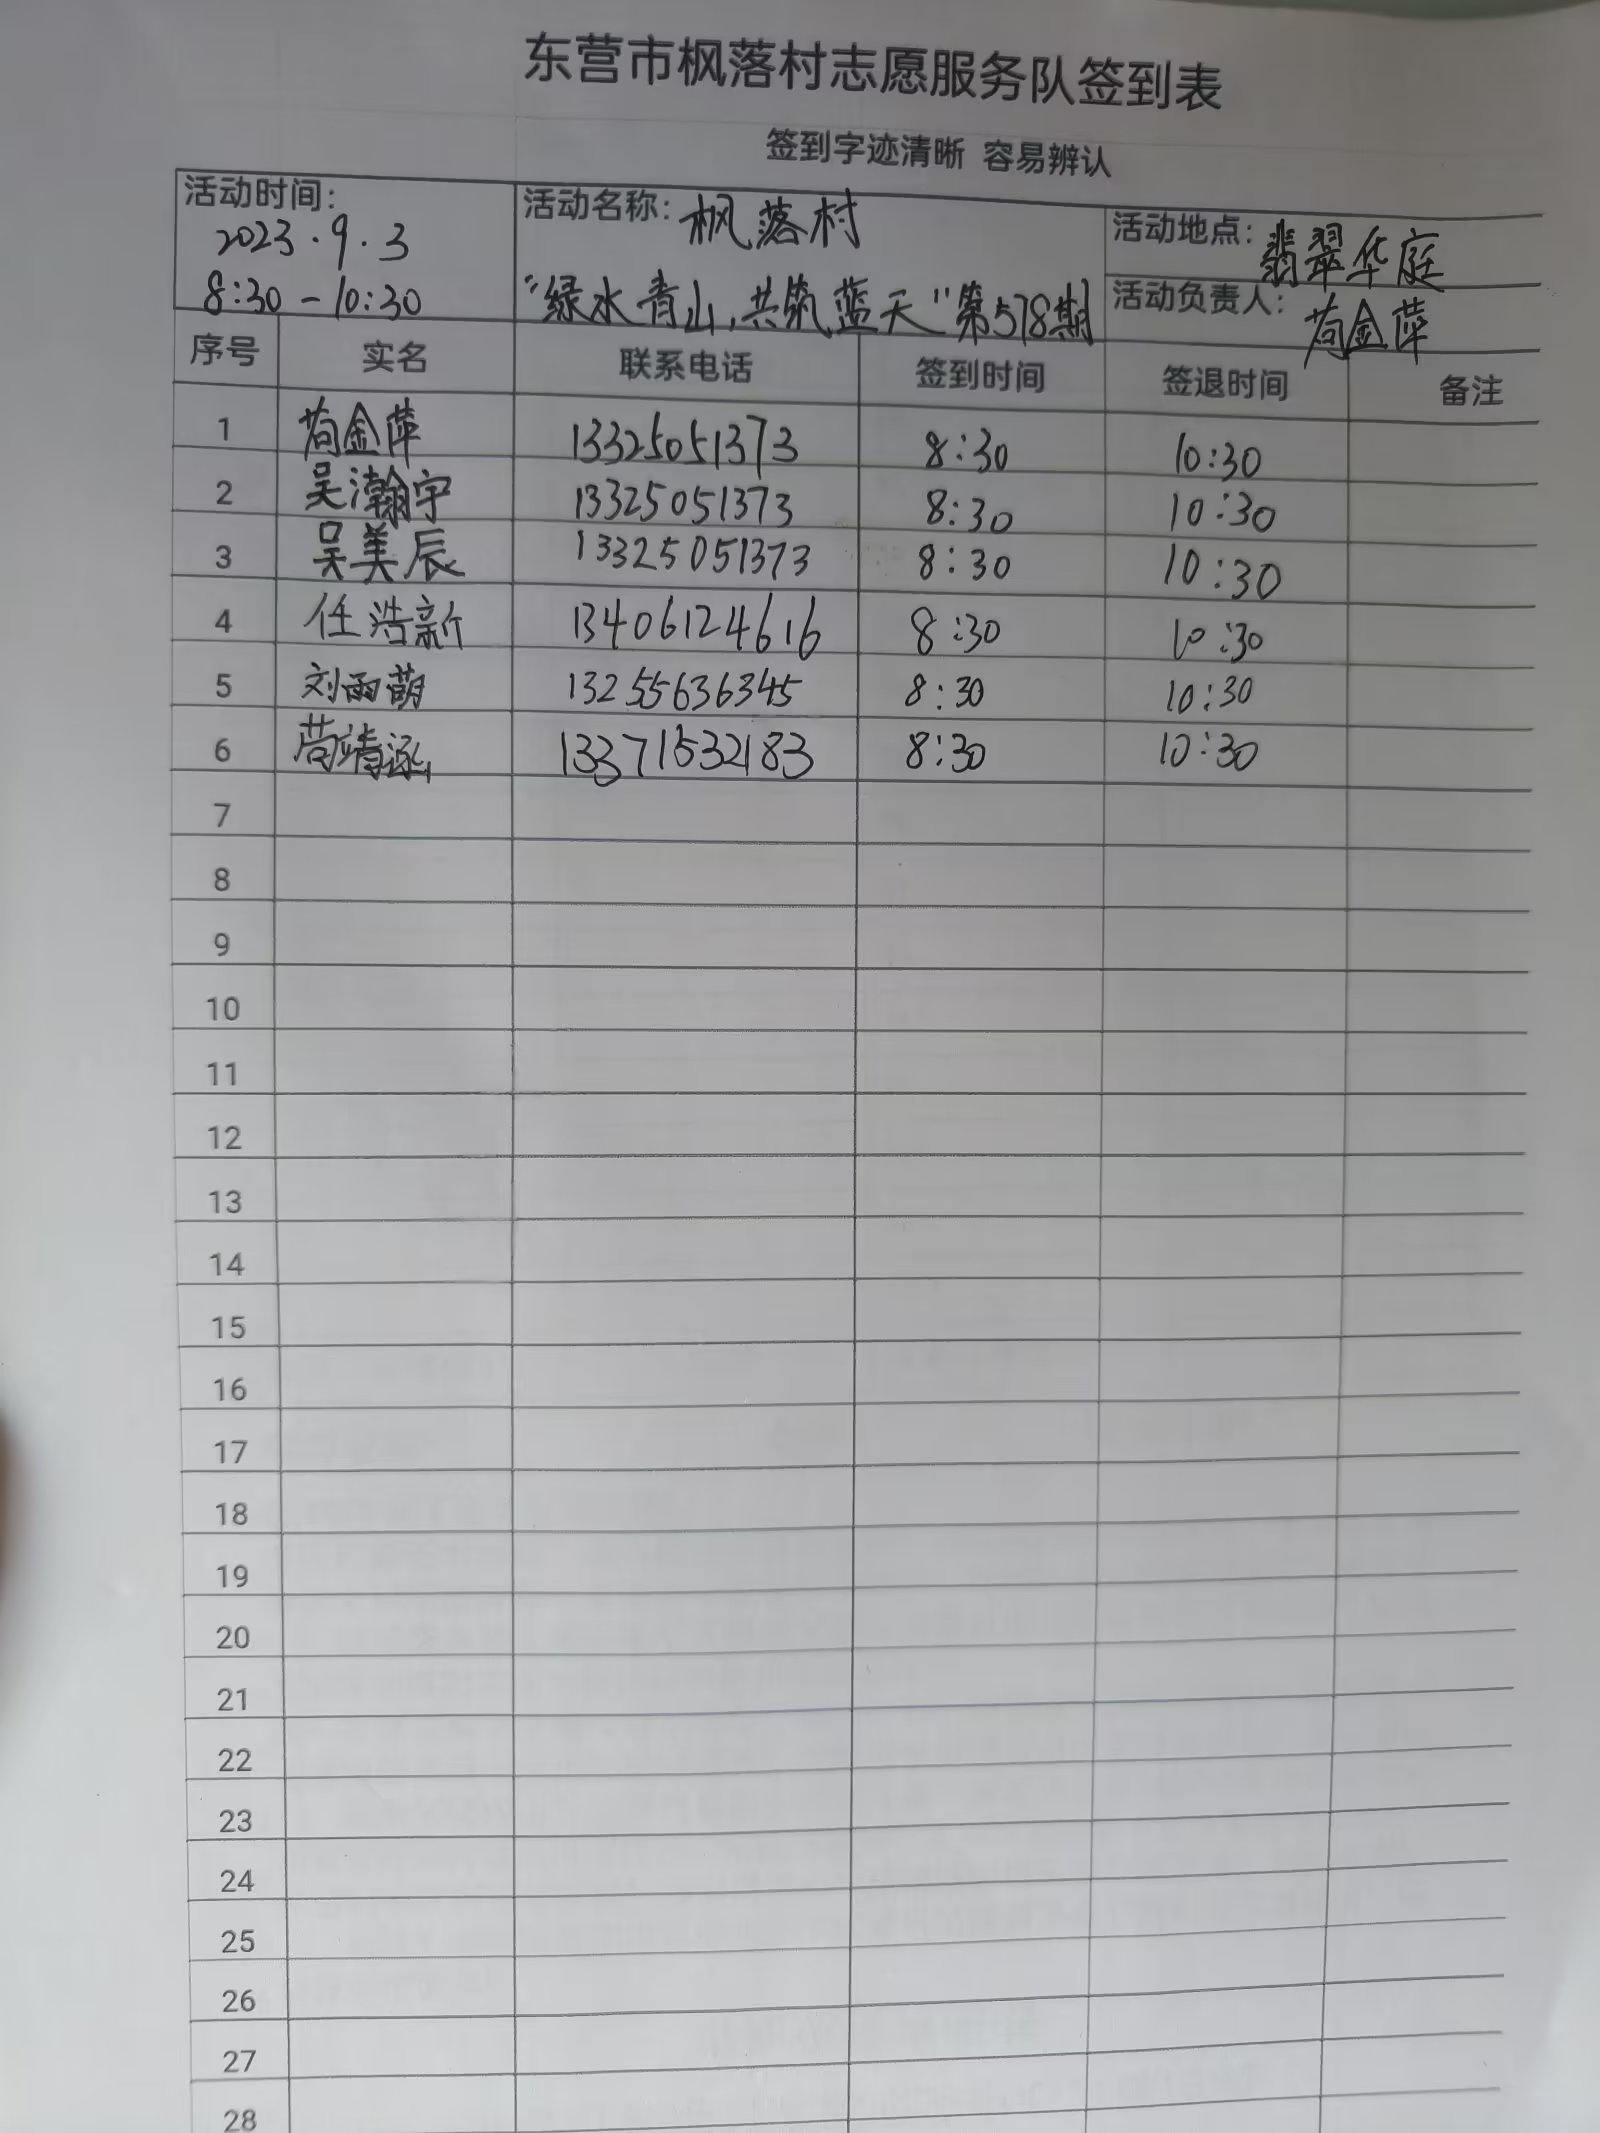 东营市枫落村志愿服务队签到表
签到字迹清晰 容易辨认
活动时间: 2023.9.3 8:30-10:30
活动名称: 枫落村 "绿水青山,共筑蓝天"第578期
活动地点: 翡翠华庭
活动负责人: 苟金萍
序号 实名 联系电话 签到时间 签退时间 备注
1 苟金萍 13325051373 8:30 10:30
2 吴瀚宇 13325051373 8:30 10:30
3 吴美辰 13325051373 8:30 10:30
4 任浩新 13406124616 8:30 10:30
5 刘雨萌 13255636345 8:30 10:30
6 13371532183 8:30 10:30
7
8
9
10
11
12
13
14
15
16
17
18
19
20
21
22
23
24
25
26
27
28